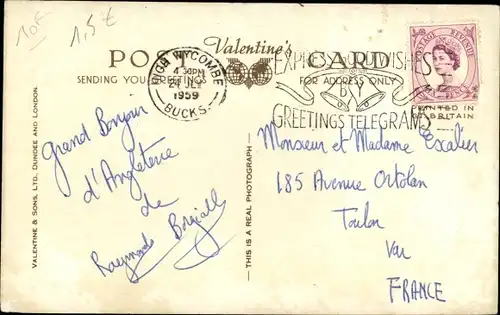 10F
1,5€
POST CARD
Valentine's
SENDING YOU GREETINGS
FOR ADDRESS ONLY
HIGH WYCOMBE
4 30PM
24 JLY
1959
BUCKS.
EXPRESS GOOD WISHES
BY
GREETINGS TELEGRAMS
POSTAGE REVENUE
PRINTED IN
GT. BRITAIN
VALENTINE & SONS, LTD. DUNDEE AND LONDON.
THIS IS A REAL PHOTOGRAPH
Grand Bonjour
d'Angleterre
de
Raymonde
Monsieur et Madame Escalier
185 Avenue Ortolan
Toulon
Var
FRANCE